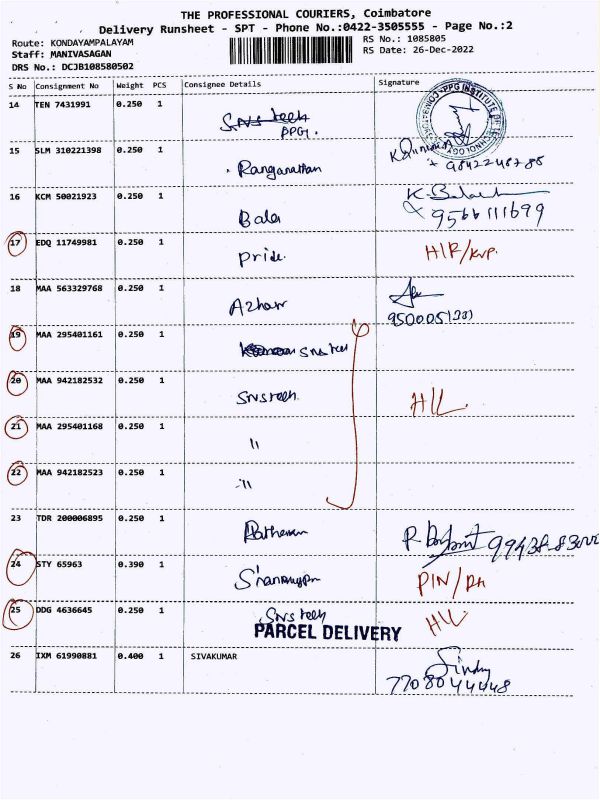 THE PROFESSIONAL COURIERS, Coimbatore
Delivery Runsheet - SPT - Phone No.:0422-3505555 - Page No.:2
Route: KONDAYAMPALAYAM
RS No.: 1085805
Staff: MANIVASAGAN
RS Date: 26-Dec-2022
DRS No.: DCJB108580502
S No Consignment No Weight PCS Consignee Details Signature
14 TEN 7431991 0.250 1
PPG INSTITUTE OF TECHNOLOGY
15 SLM 310221398 0.250 1 Ranganathan
9842248788
16 KCM 50021923 0.250 1 Bala
9566111699
17 EDQ 11749981 0.250 1 Pride
18 MAA 563329768 0.250 1 Azhar
19 MAA 295401161 0.250 1 SNS tech
20 MAA 942182532 0.250 1 SNS tech
21 MAA 295401168 0.250 1 "
22 MAA 942182523 0.250 1 "
23 TDR 200006895 0.250 1
24 STY 65963 0.390 1
25 DDG 4636645 0.250 1 SNS tech
PARCEL DELIVERY
26 IXM 61990881 0.400 1 SIVAKUMAR
7708044448